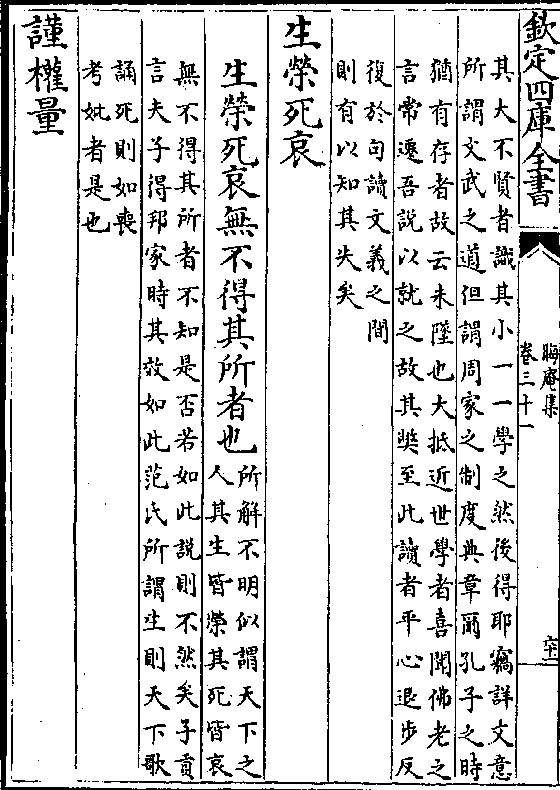 欽定四庫全書
晦庵集
卷三十一
其大不賢者識其小一一學之然後得耶竊詳文意
所謂文武之道但謂周家之制度典章爾孔子之時
猶有存者故云未墜也大抵近世學者喜聞佛老之
言常遷吾說以就之故其獘至此讀者平心退步反
復於句讀文義之間
則有以知其失矣
生榮死哀
生榮死哀無不得其所者也
所解不明似謂天下之
人其生皆榮其死皆哀
無不得其所者不知是否若如此說則不然矣子貢
言夫子得邦家時其效如此范氏所謂生則天下歌
誦死則如喪
考妣者是也
謹權量